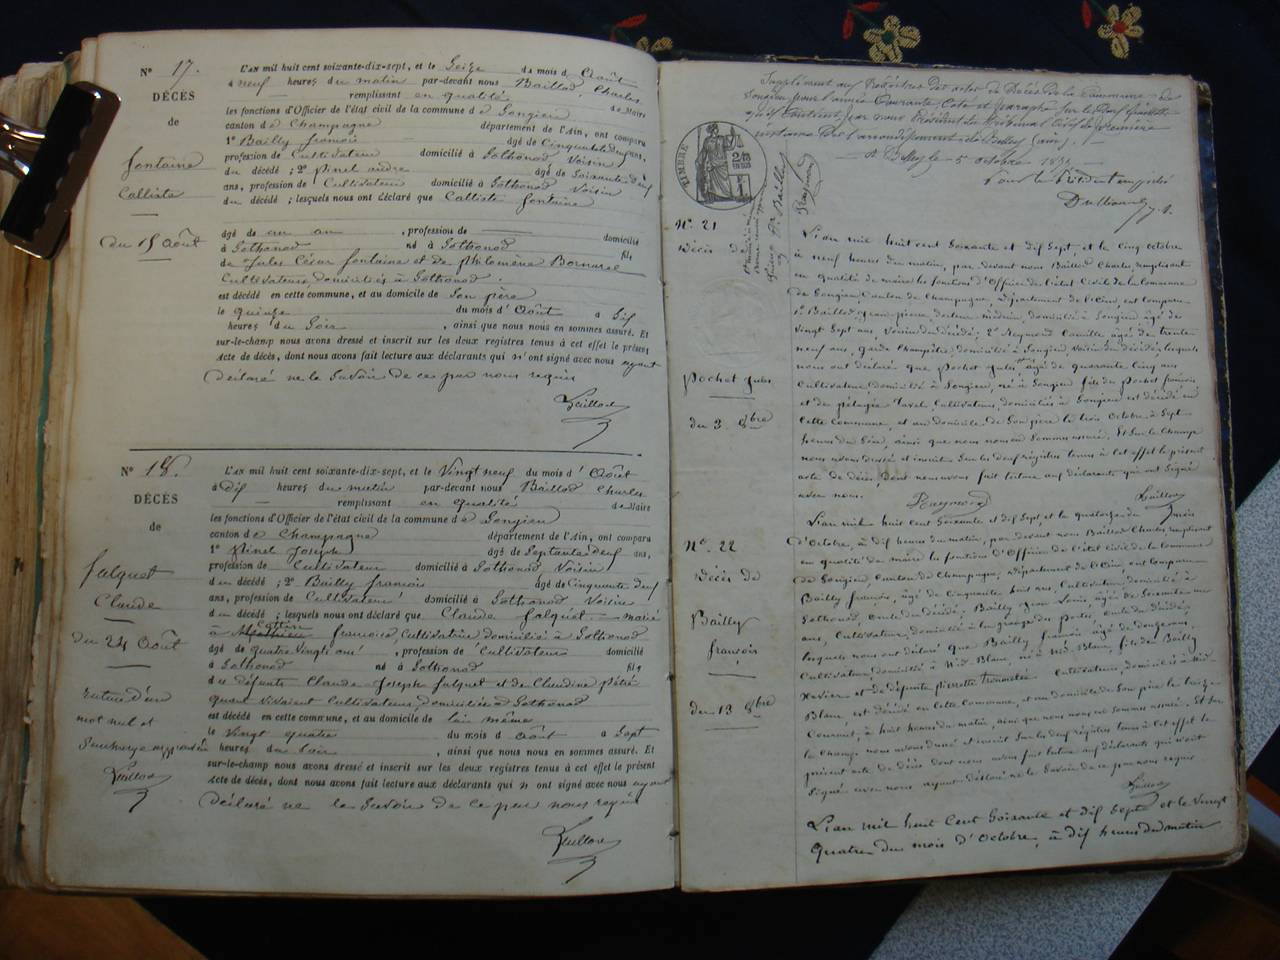 N° 17.
DÉCÈS
de
fontaine
Calliste
du 15 Août
L'AN mil huit cent soixante-dix-sept, et le Seize du mois d'Août
à neuf heures du matin par-devant nous Baillod Charles
remplissant en qualité de Maire
les fonctions d'Officier de l'état civil de la commune de Songieu
canton de Champagne département de l'Ain, ont comparu
1° Bailly françois âgé de Cinquante ans,
profession de Cultivateur domicilié à Sothonod Voisin
du décédé ; 2° Pinel andré âgé de Soixante deux
ans, profession de Cultivateur domicilié à Sothonod Voisin
du décédé ; lesquels nous ont déclaré que Calliste fontaine
âgé de un an , profession de domicilié
à Sothonod né à Sothonod fils
de Jules César fontaine et de Philomène Bornarel
Cultivateurs domiciliés à Sothonod.
est décédé en cette commune, et au domicile de Son père
le quinze du mois d'Août à Six
heures du Soir , ainsi que nous nous en sommes assuré. Et
sur-le-champ nous avons dressé et inscrit sur les deux registres tenus à cet effet le présent
Acte de décès, dont nous avons fait lecture aux déclarants qui n'ont signé avec nous ayant
déclaré ne le Savoir de ce par nous requis
Baillod
N° 18.
DÉCÈS
de
falquet
Claude
du 24 Août
rature d'un
mot nul et
Surcharge approuvée
Baillod
L'AN mil huit cent soixante-dix-sept, et le Vingt neuf du mois d'Août
à dix heures du matin par-devant nous Baillod Charles
remplissant en qualité de Maire
les fonctions d'Officier de l'état civil de la commune de Songieu
canton de Champagne département de l'Ain, ont comparu
1° Pinel Joseph âgé de Septante Deux ans,
profession de Cultivateur domicilié à Sothonod Voisin
du décédé ; 2° Bailly françois âgé de Cinquante deux
ans, profession de Cultivateur domicilié à Sothonod Voisin
du décédé ; lesquels nous ont déclaré que Claude falquet marié
à françoise Cultivatrice domicilié à Sothonod
âgé de quatre Vingts ans , profession de Cultivateur domicilié
à Sothonod né à Sothonod fils
du défunts Claude Joseph falquet et de Claudine
quand vivaient Cultivateurs domiciliés à Sothonod
est décédé en cette commune, et au domicile de lui même
le Vingt quatre du mois d'Août à Sept
heures du Soir , ainsi que nous nous en sommes assuré. Et
sur-le-champ nous avons dressé et inscrit sur les deux registres tenus à cet effet le présent
Acte de décès, dont nous avons fait lecture aux déclarants qui n'ont signé avec nous ayant
déclaré ne le Savoir de ce par nous requis
Baillod
Supplément au Registre des actes de Décès de la Commune de
Songieu pour l'année Courante Coté et paraphé Sur le Seul feuillet
qu'il Contient, par nous Président du tribunal Civil de première
instance de l'arrondissement de Belley (ain).
A Belley le 5 octobre 1877
Pour le Président empêché
TIMBRE
N°. 21
Décès de
Pochet Jules
du 3 8bre
L'an mil huit cent Soixante et dix Sept, et le cinq octobre
à neuf heures du matin, par devant nous Baillod Charles, remplissant
en qualité de maire les fonctions d'Officier de l'état Civil de la Commune
de Songieu Canton de Champagne, Département de l'Ain, est comparu
1° Baillod Jean pierre docteur médecin, domicilié à Songieu âgé de
Vingt Sept ans, Voisin du décédé; 2° Reymond Camille âgé de trente
neuf ans, garde Champêtre domicilié à Songieu Voisin du décédé, lesquels
nous ont déclaré que Pochet Jules âgé de quarante cinq ans
Cultivateur domicilié à Songieu, né à Songieu fils de Pochet françois
et de pélagie Tavel, Cultivateurs, domiciliés à Songieu est décédé en
Cette Commune, et au domicile de Son père le trois Octobre à Sept
heures du Soir, ainsi que nous nous en Sommes assuré. Et Sur le Champ
nous avons dressé et inscrit Sur les deux registres tenus à cet effet le présent
acte de décès, dont nous avons fait lecture aux déclarants qui ont Signé
avec nous.
Reymond Baillod
N°. 22
Décès de
Bailly
françois
du 13 8bre
L'an mil huit cent Soixante et dix Sept, et le quatorze du mois
d'Octobre, à dix heures du matin, par devant nous Baillod Charles remplissant
en qualité de maire les fonctions d'Officier de l'état civil de la Commune
de Songieu, Canton de Champagne, Département de l'Ain, ont Comparu
Bailly françois, âgé de Cinquante huit ans, Cultivateur domicilié à
Sothonod, oncle du décédé, Bailly Jean Louis, âgé de Soixante un
ans, Cultivateur, domicilié à la grange du porte, oncle du décédé,
lesquels nous ont déclaré que Bailly françois âgé de douze ans,
Cultivateur, domicilié à Nid Blanc, né à Nid Blanc, fils de Bailly
Xavier et de défunte pierrette Cultivateurs, domiciliés à Nid
Blanc, est décédé en Cette Commune, et au domicile de Son père le treize
Courant, à huit heures du matin, ainsi que nous nous en Sommes assuré. Et Sur
le Champ nous avons dressé et inscrit Sur les deux registres tenus à cet effet le
présent acte de décès dont nous avons fait lecture aux déclarants qui n'ont
Signé avec nous ayant déclaré ne le Savoir de ce par nous requis
Baillod
L'an mil huit Cent Soixante et dix Sept et le Vingt
quatre du mois d'Octobre, à dix heures du matin